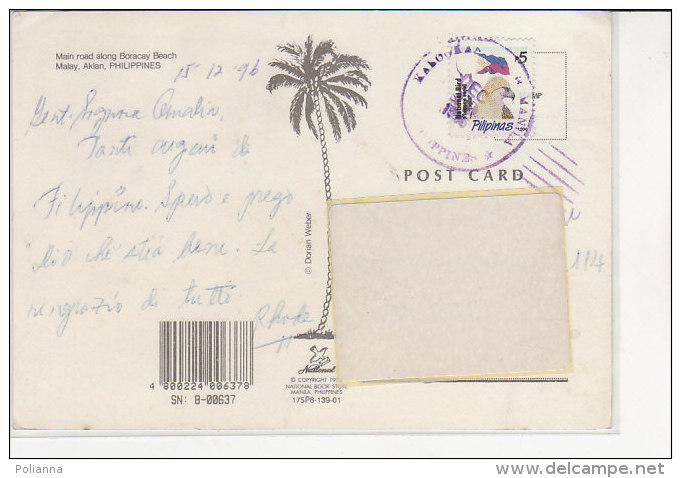 Main road along Boracay Beach
Malay, Aklan, PHILIPPINES
15-12-96
Gent. Signora Amalia,
Tanti auguri da
Filippine. Spero e prego
Dio che stia bene. La
ringrazio di tutto
Rhoda
© Dorian Weber
4 800224 006378
SN: B-00637
National
© COPYRIGHT
NATIONAL BOOK STORE
MANILA, PHILIPPINES
175P8-139-01
POST CARD
5
National Bird
Pilipinas
MANILA
DEC
114
Polianna
http://www.delcampe.net